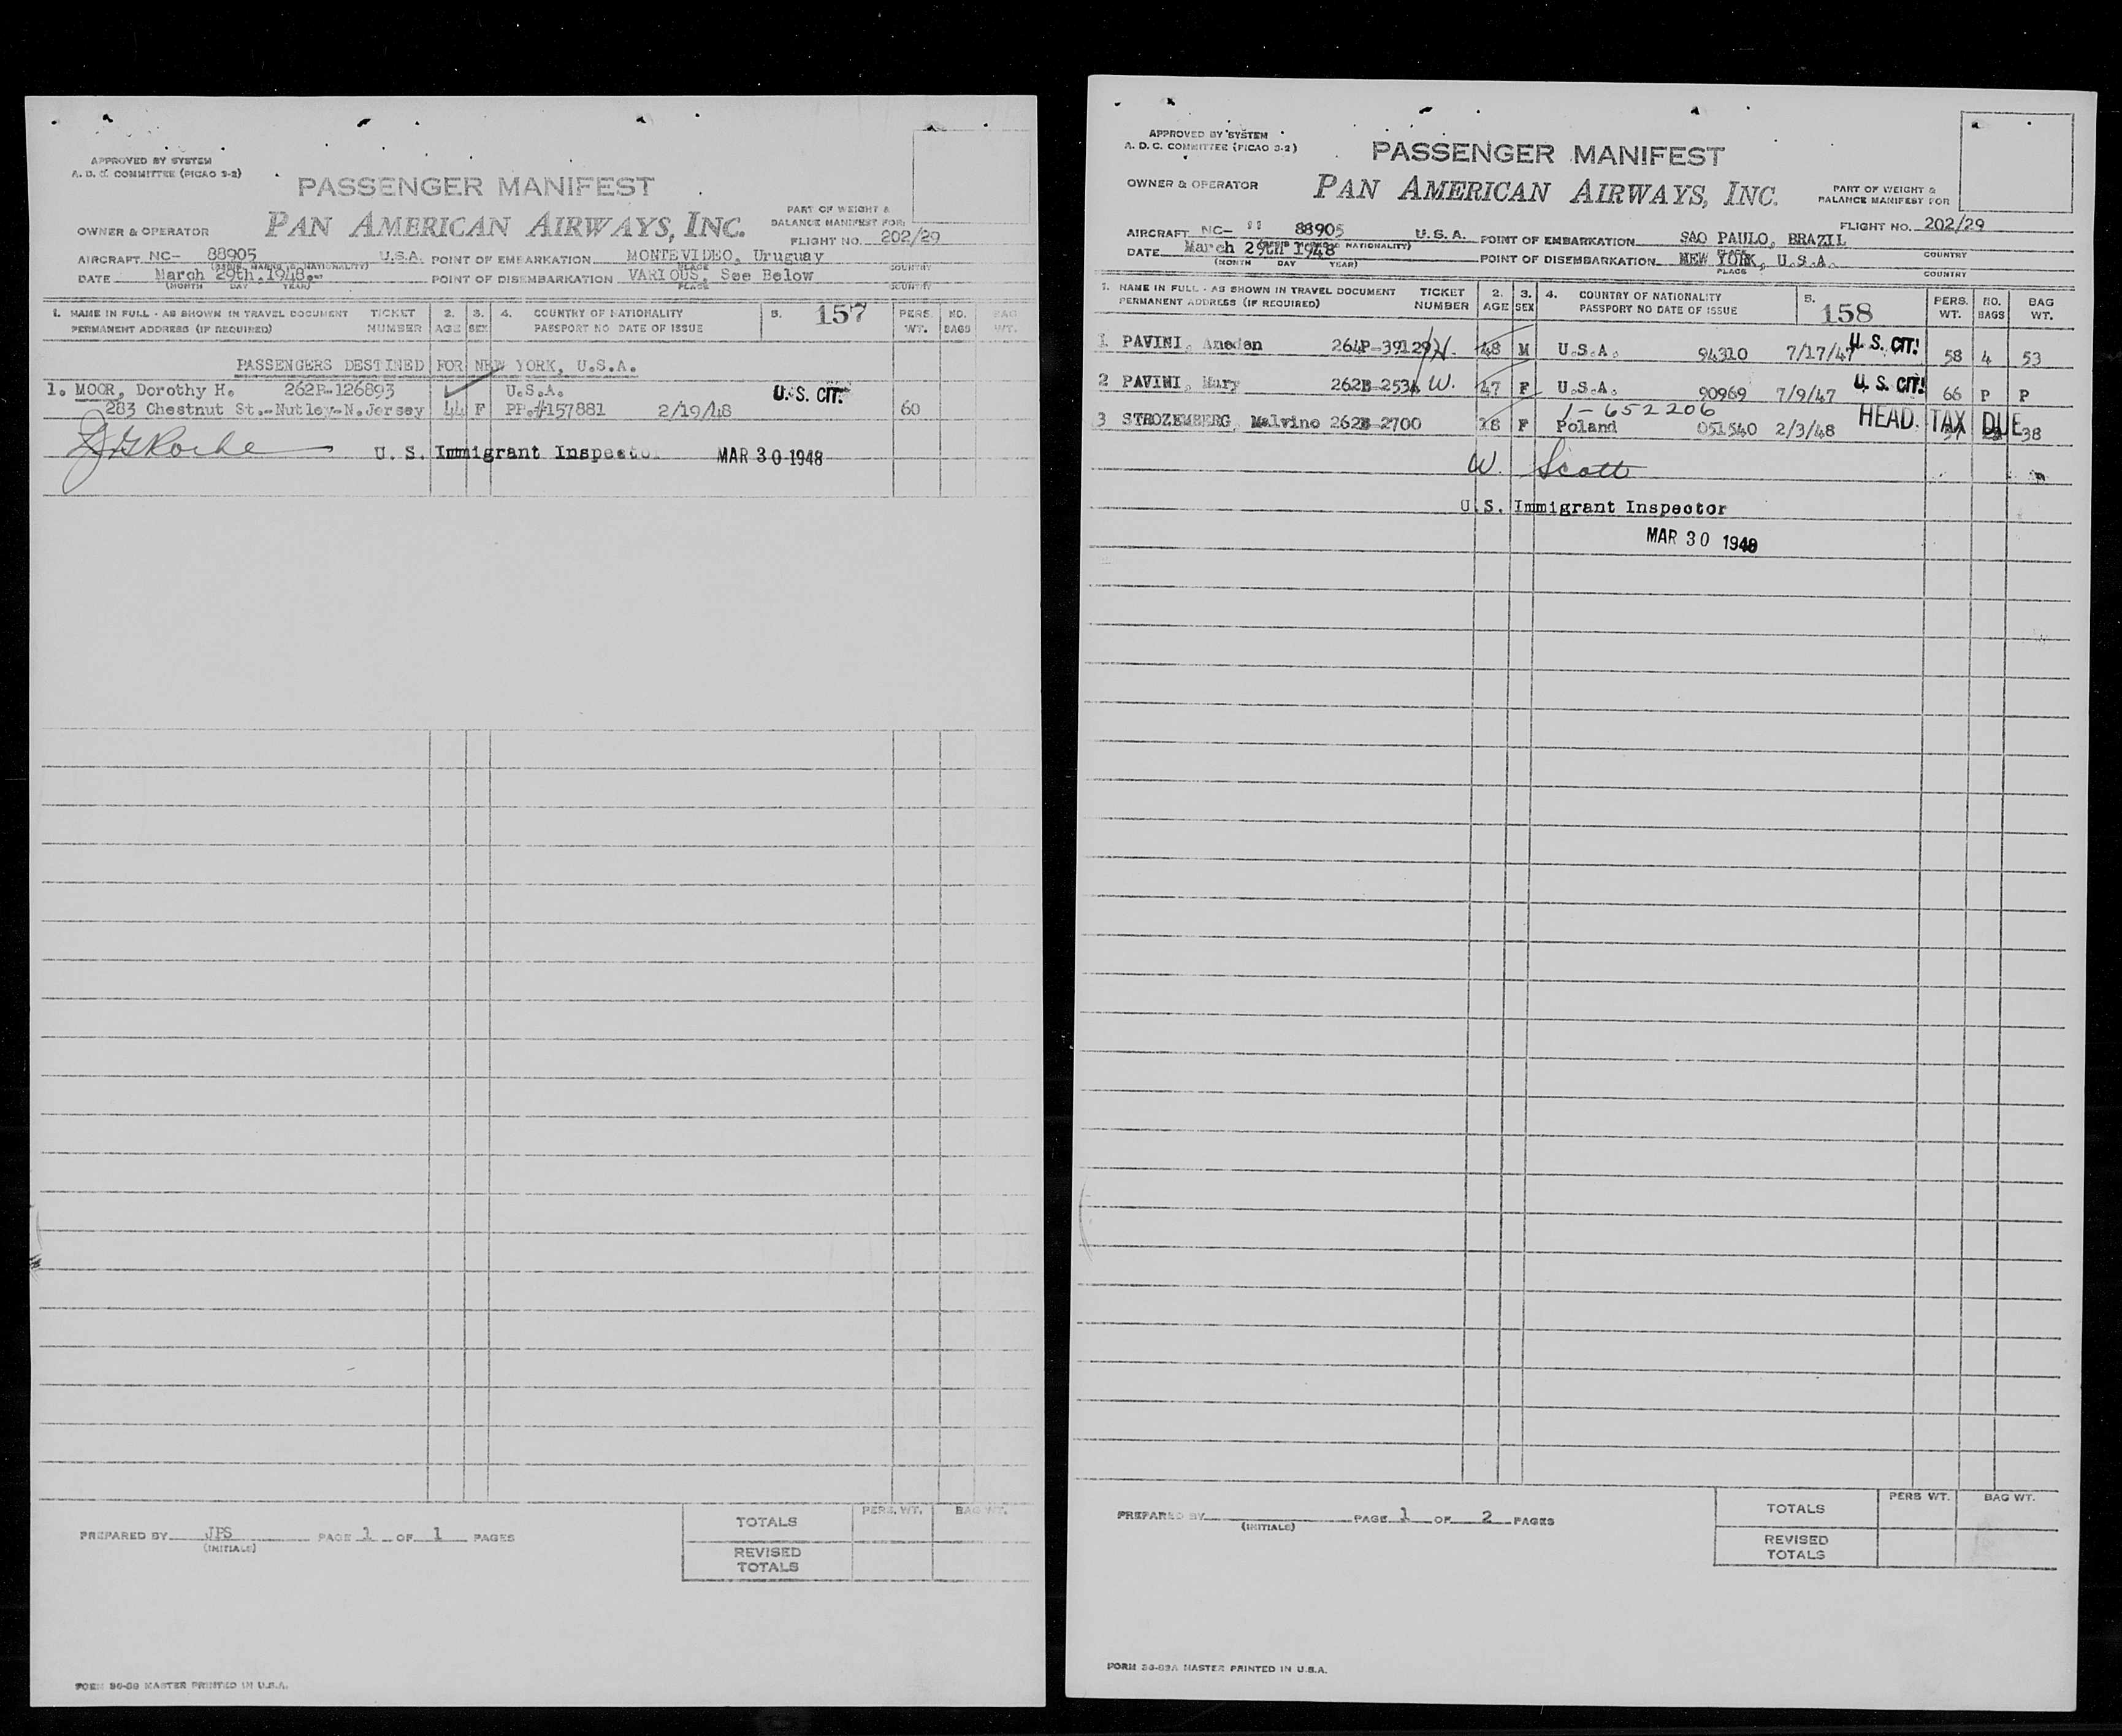 APPROVED BY SYSTEM
A. D. C. COMMITTEE (PICAO 3-2)
PASSENGER MANIFEST
OWNER & OPERATOR
PAN AMERICAN AIRWAYS, INC.
PART OF WEIGHT &
BALANCE MANIFEST FOR:
FLIGHT NO. 202/29
AIRCRAFT NC- 88905 U.S.A. POINT OF EMBARKATION MONTEVIDEO, Uruguay
DATE March 29th, 1948. POINT OF DISEMBARKATION VARIOUS, See Below
(MONTH DAY YEAR) PLACE COUNTRY
1. NAME IN FULL - AS SHOWN IN TRAVEL DOCUMENT TICKET 2. 3. 4. COUNTRY OF NATIONALITY 5. 157 PERS. NO. BAG
PERMANENT ADDRESS (IF REQUIRED) NUMBER AGE SEX PASSPORT NO DATE OF ISSUE WT. BAGS WT.
PASSENGERS DESTINED FOR NEW YORK, U.S.A.
1. MOOR, Dorothy H. 262P-126893 U.S.A. U.S. CIT.
283 Chestnut St.-Nutley-N.Jersey 44 F PP.#157881 2/19/48 60
U. S. Immigrant Inspector MAR 30 1948
PREPARED BY JPS PAGE 1 OF 1 PAGES
(INITIALS)
PERS. WT. BAG WT.
TOTALS
REVISED
TOTALS
FORM 36-39 MASTER PRINTED IN U.S.A.
APPROVED BY SYSTEM
A. D. C. COMMITTEE (PICAO 3-2)
PASSENGER MANIFEST
OWNER & OPERATOR
PAN AMERICAN AIRWAYS, INC.
PART OF WEIGHT &
BALANCE MANIFEST FOR
FLIGHT NO. 202/29
AIRCRAFT NC- 88905 U.S.A. POINT OF EMBARKATION SAO PAULO, BRAZIL
DATE March 29th 1948 POINT OF DISEMBARKATION NEW YORK, U.S.A.
(MONTH DAY YEAR) PLACE COUNTRY
1. NAME IN FULL - AS SHOWN IN TRAVEL DOCUMENT TICKET 2. 3. 4. COUNTRY OF NATIONALITY 5. 158 PERS. NO. BAG
PERMANENT ADDRESS (IF REQUIRED) NUMBER AGE SEX PASSPORT NO DATE OF ISSUE WT. BAGS WT.
1 PAVINI, Ameden 264P-39129 H. 48 M U.S.A. 94310 7/17/47 U.S. CIT! 58 4 53
2 PAVINI, Mary 262B-2534 W. 47 F U.S.A. 90969 7/9/47 U.S. CIT! 66 P P
1-652206
3 STROZEMBERG, Malvino 262B-2700 18 F Poland 051540 2/3/48 HEAD TAX DUE 38
W. Scott
U.S. Immigrant Inspector
MAR 30 1948
PREPARED BY PAGE 1 OF 2 PAGES
(INITIALS)
PERS WT. BAG WT.
TOTALS
REVISED
TOTALS
FORM 36-39A MASTER PRINTED IN U.S.A.